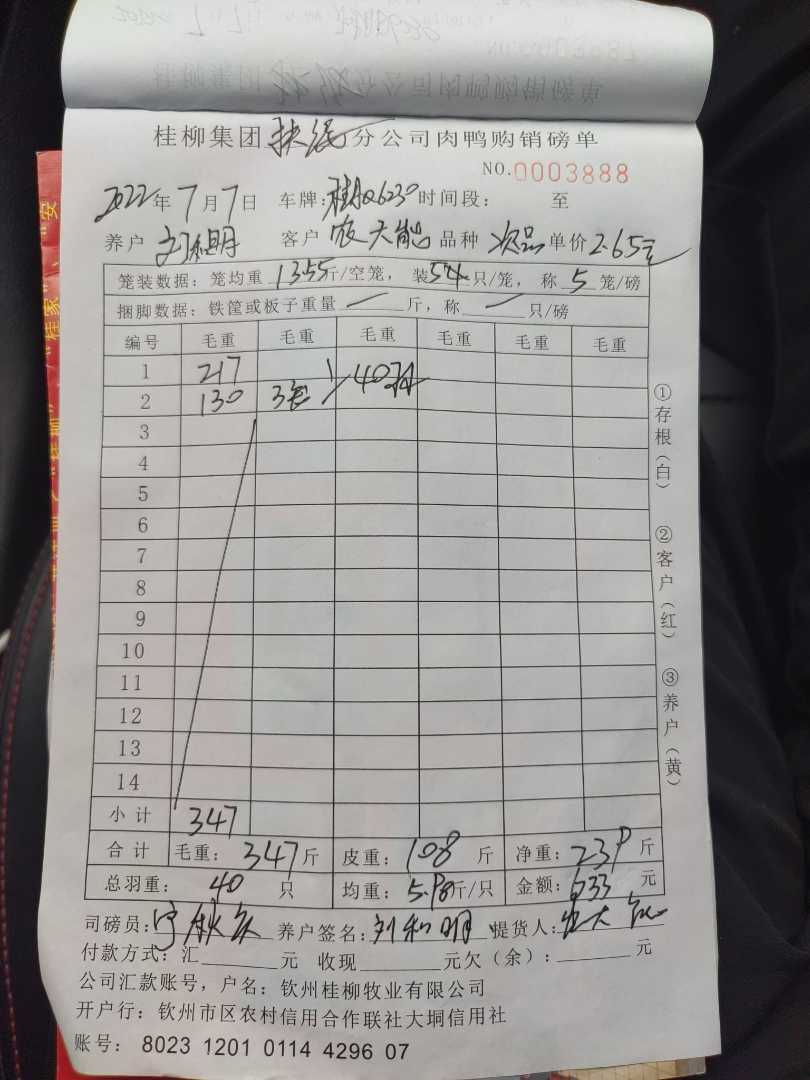 桂柳集团 分公司肉鸭购销磅单
NO.0003888
2022年7月7日 车牌: 时间段: 至
养户 客户 品种 次品 单价2.65元
笼装数据: 笼均重 13.55斤/空笼, 装54只/笼, 称5笼/磅
捆脚数据: 铁筐或板子重量 一 斤, 称 一 只/磅
编号 毛重 毛重 毛重 毛重 毛重 毛重
1 217
2 130 3笼 40羽
3
4
5
6
7
8
9
10
11
12
13
14
小计 347
合计 毛重: 347斤 皮重: 108 斤 净重: 239 斤
总羽重: 40 只 均重: 5.98斤/只 金额: 633 元
司磅员: 养户签名: 刘和明 提货人:
付款方式: 汇 元 收现 元欠(余): 元
公司汇款账号, 户名: 钦州桂柳牧业有限公司
开户行: 钦州市区农村信用合作联社大垌信用社
账号: 8023 1201 0114 4296 07
①存根(白)
②客户(红)
③养户(黄)